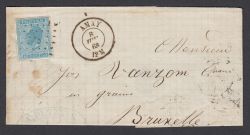 AMAY
8
68
12 M
Monsieur
Jos Vanzom
en grains
Bruxelle